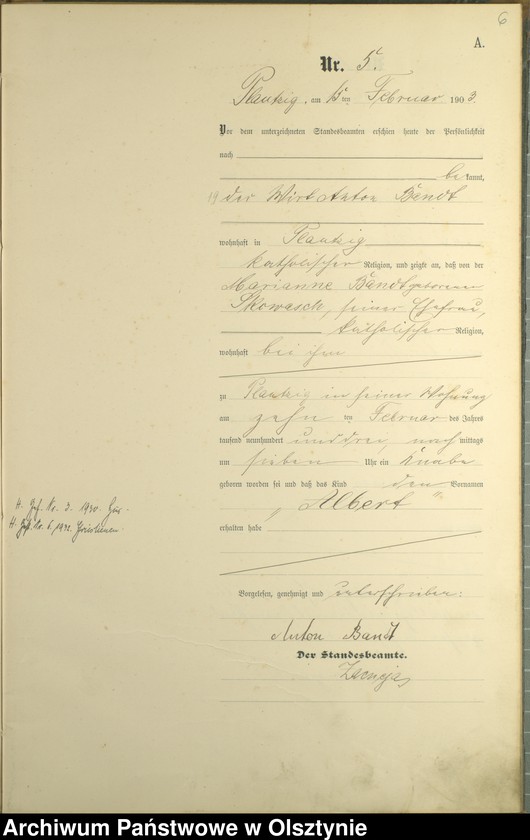 6
A.
Nr. 5.
Plautzig, am 15 ten Februar 1903.
Vor dem unterzeichneten Standesbeamten erschien heute der Persönlichkeit
nach
be kannt,
der Wirt Anton Bandt
wohnhaft in Plautzig
katholischer Religion, und zeigte an, daß von der
Marianne Bandt geborenen
Skowasch, seiner Ehefrau,
katholischer Religion,
wohnhaft bei ihm
zu Plautzig in seiner Wohnung
am zehn ten Februar des Jahres
tausend neunhundert und drei, nach mittags
um sieben Uhr ein Knabe
geboren worden sei und daß das Kind den Vornamen
„Albert“
erhalten habe
H. Nr. 3. 1930.
H. Nr. 6. 1932.
Vorgelesen, genehmigt und unterschrieben:
Anton Bandt
Der Standesbeamte.
Archiwum Państwowe w Olsztynie